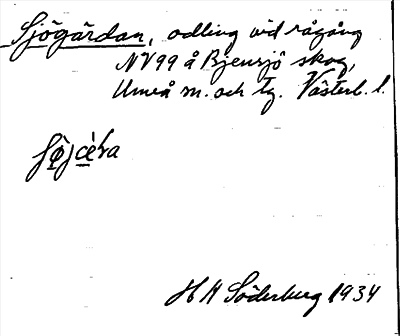 Sjögärdan, odling vid rågång
NV99 å Bjensjö skog,
Umeå m. och tg. Västerb. l.
H A Söderberg 1934